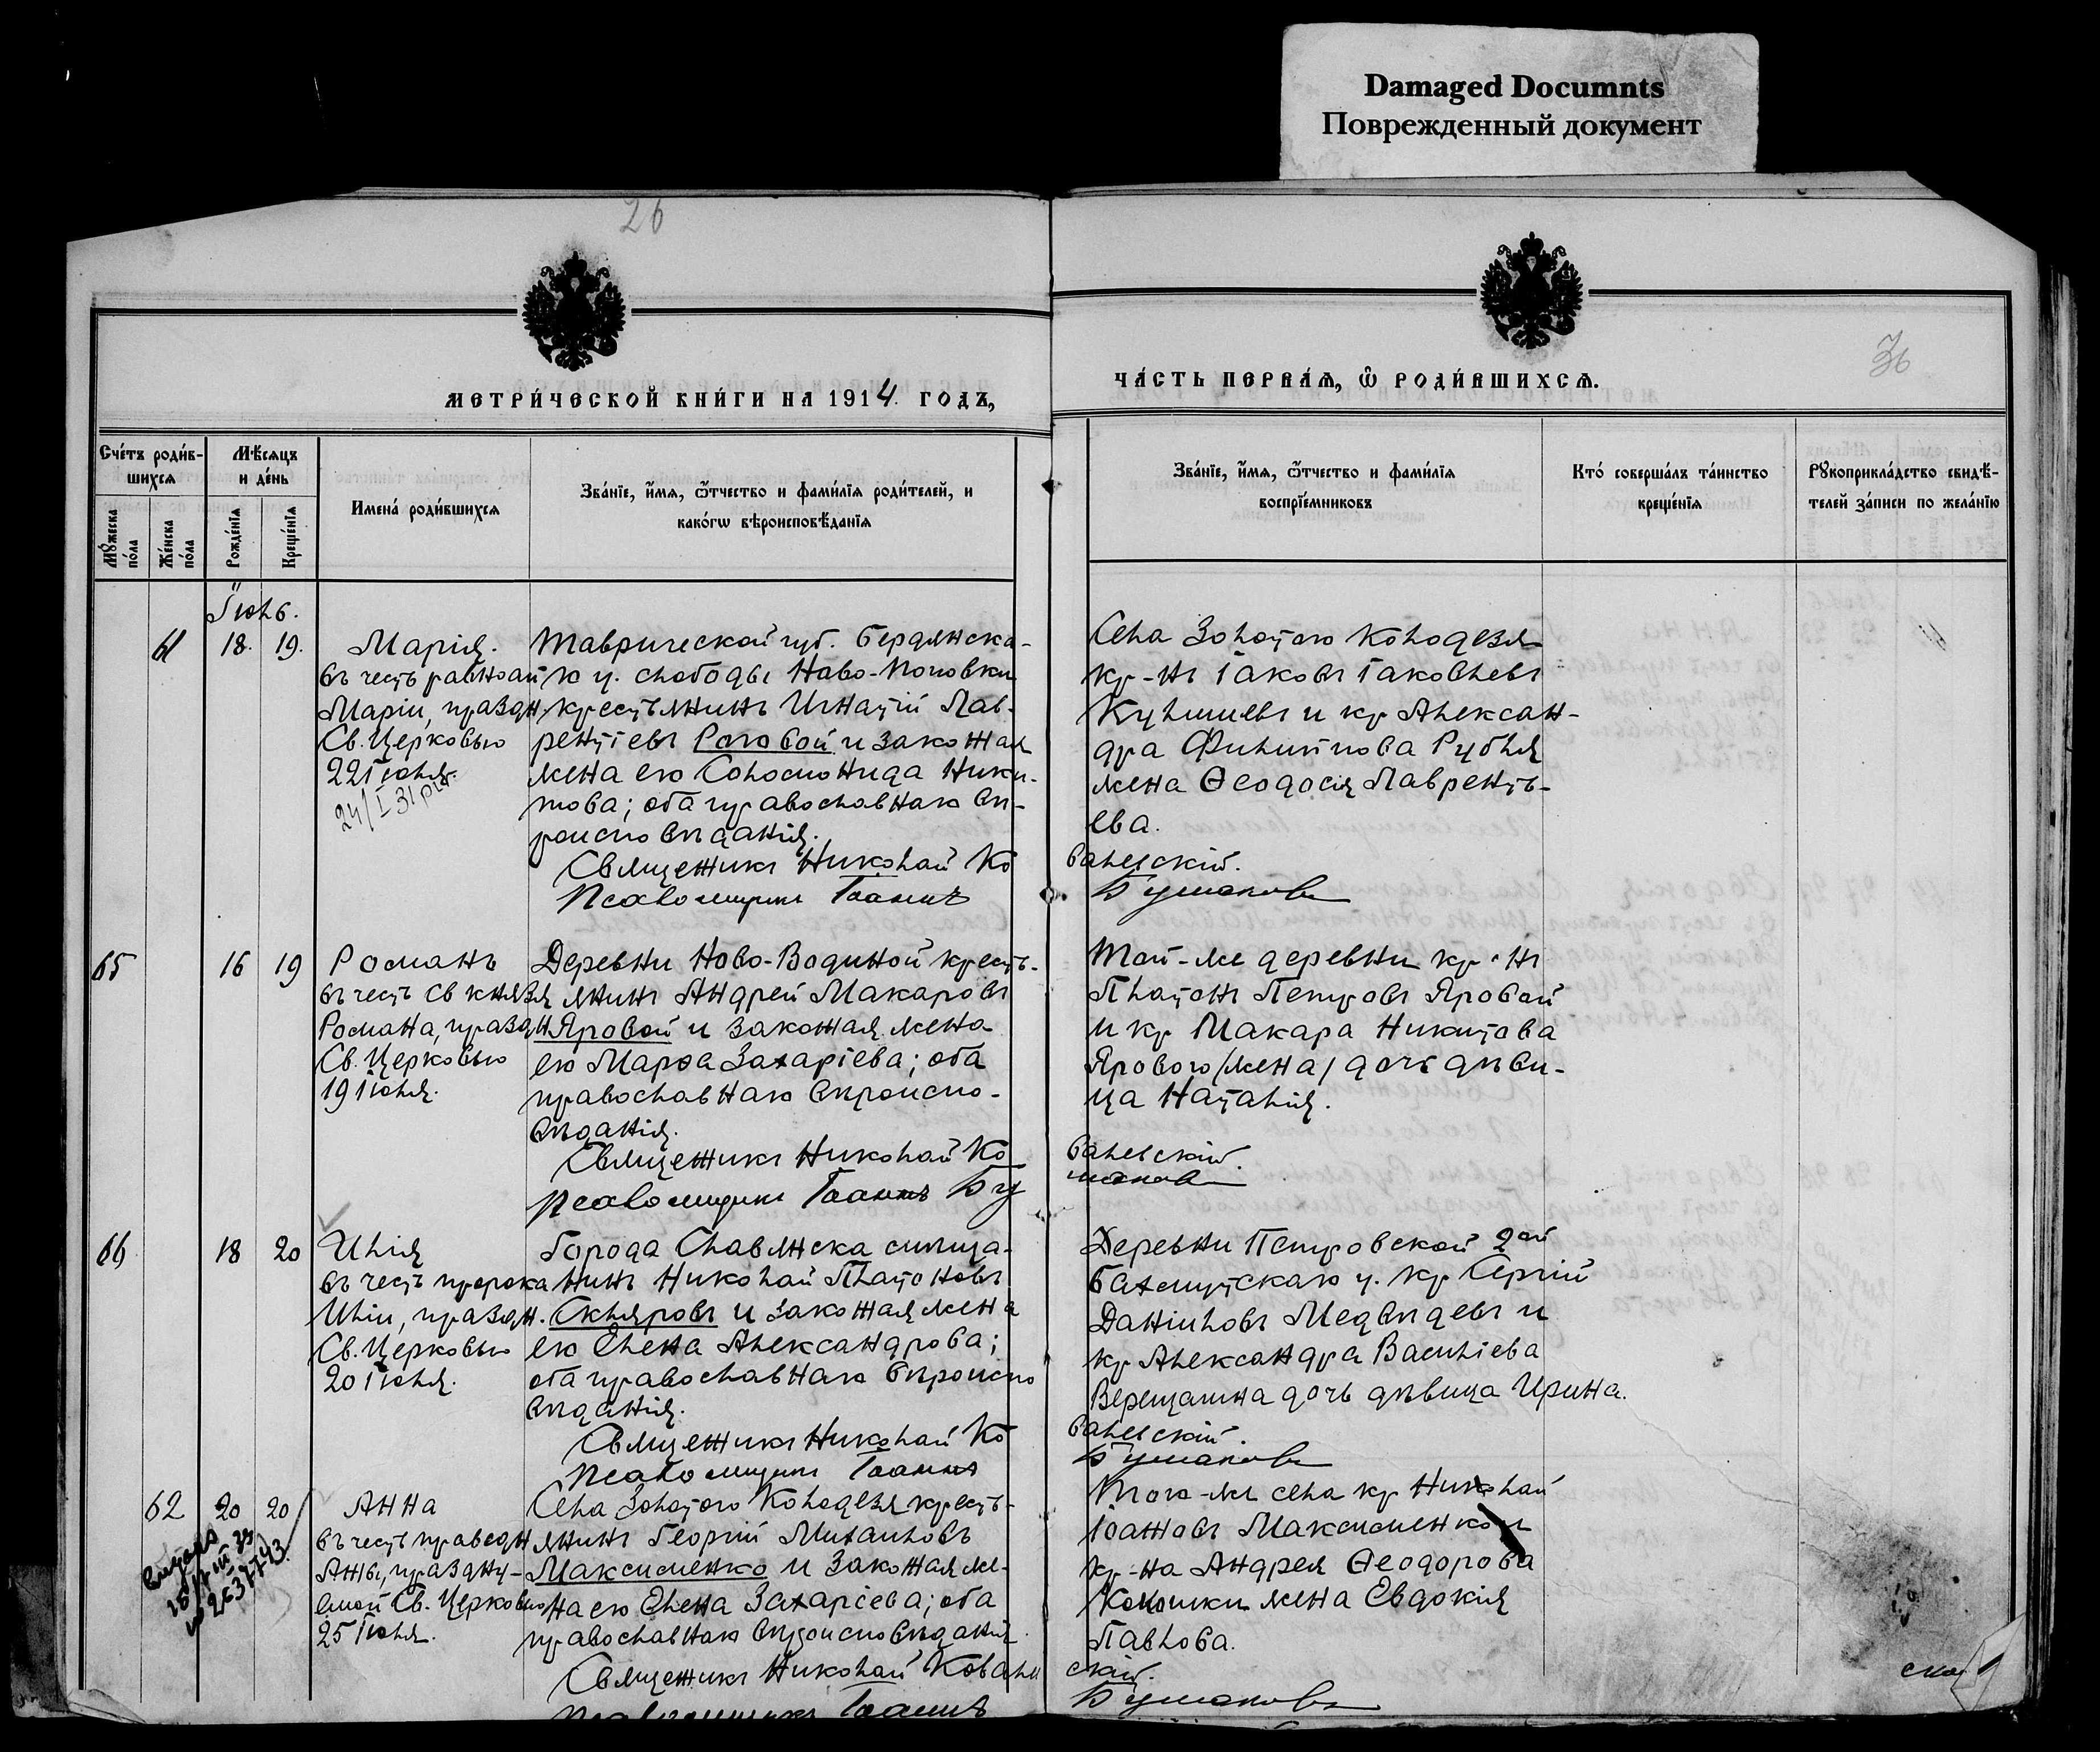 Damaged Documnts
Поврежденный документ
26
36
МЕТРИ́ЧЕСКОЙ КНИ́ГИ НА 1914 ГОДЪ,
ЧА́СТЬ ПЕРВАѦ, Ѿ РОДИ́ВШИХСѦ.
Сче́тъ роди́в-
шихсѧ
Мꙋ́жеска по́ла
Же́нска по́ла
Мѣ́сѧцъ
и де́нь
Рожде́нїѧ
Креще́нїѧ
Имена́ роди́вшихсѧ
Зва́нїе, и҆́мѧ, ѻ҆́тчество и фами́лїѧ роди́телей, и
како́гѡ вѣроисповѣ́данїѧ
Зва́нїе, и҆́мѧ, ѻ҆́тчество и фами́лїѧ
воспрїе́мниковъ
Кто́ соверша́лъ та́инство
креще́нїѧ
Рꙋкоприкла́дство свидѣ́-
телей за́писи по жела́нїю
Іюль.
61 18. 19.
Марія.
въ честь равноап
Маріи, праздн.
Св. Церковью
22 Іюля.
Таврической губ. Бердянска-
го у. слободы Ново-Поповки
крестьянинъ Игнатій Лав-
рентіевъ Роговой и законная
жена его Соломонида Ники-
това; оба православнаго вѣ-
роисповѣданія.
Села Золотого Колодезя
кр-нъ Іаковъ Іаковлевъ
и кр Алексан-
дра Филиппова Рубля
жена Ѳеодосія Лавренть-
ева.
Священникъ Николай Ко
валевскій.
Псаломщикъ Іоаннъ
Бушаковъ
65 16 19
Романъ
въ честь св князя
Романа, праздн
Св. Церковью
19 Іюля.
Деревни Ново-Водяной кресть-
янинъ Андрей Макаровъ
Яровой и законная жена
его Марѳа Захаріева; оба
православнаго вѣроиспо-
вѣданія.
Той-же деревни кр-нъ
Платонъ Петровъ Яровой
и кр Макара Никитова
Ярового /жена/ дочь дѣви-
ца Наталія.
Священникъ Николай Ко
валевскій.
Псаломщикъ Іоаннъ Бу
шаковъ
66 18 20
Илія
въ честь пророка
Иліи, праздн.
Св. Церковью
20 Іюля.
Города Славянска мѣща-
нинъ Николай Платоновъ
Скляровъ и законная жена
его Елена Александрова;
оба православнаго вѣроиспо
вѣданія.
Деревни Петровской 2ой
Бахмутскаго у. кр Сергій
Даніиловъ Медвѣдевъ и
кр Александра Василіева
Верещагина дочь дѣвица Ирина.
Священникъ Николай Ко
валевскій.
Псаломщикъ Іоаннъ
Бушаковъ
62 20 20
Анна
въ честь праведн
Анны, праздну-
емой Св. Церковью
25 Іюля.
Села Золотого Колодезя кресть-
янинъ Георгій Михаиловъ
Максименко и законная же-
на его Елена Захаріева; оба
православнаго вѣроисповѣданія.
Того-же села кр Николай
Іоанновъ Максименко и
кр-на Андрея Ѳеодорова
жена Евдокія
Павлова.
Священникъ Николай Ковалев
скій.
Псаломщикъ Іоаннъ
Бушаковъ